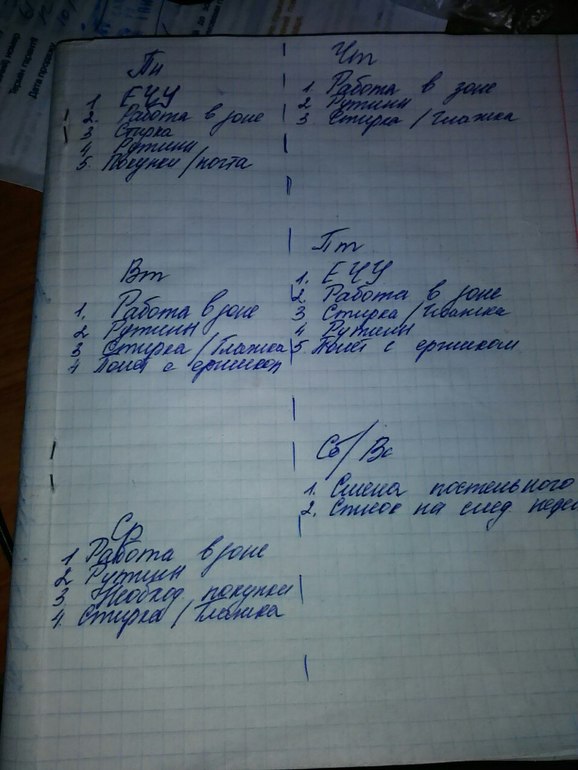 Пн
1 ЕЧУ
2. Работа в зоне
3 Стирка
4 Рутины
5. Покупки/почта
Вт
1. Работа в зоне
2 Рутины
3 Стирка/Глажка
4 Полёт с ёршиком
Ср
1 Работа в зоне
2 Рутины
3 Необход покупки
4. Стирка/Глажка
Чт
1. Работа в зоне
2 Рутины
3 Стирка/Глажка
Пт
1. ЕЧУ
2. Работа в зоне
3 Стирка/Глажка
4 Рутины
5. Полёт с ёршиком
Сб/Вс
1. Смена постельного
2. Список на след неде
Термін гарантії
Дата продажу